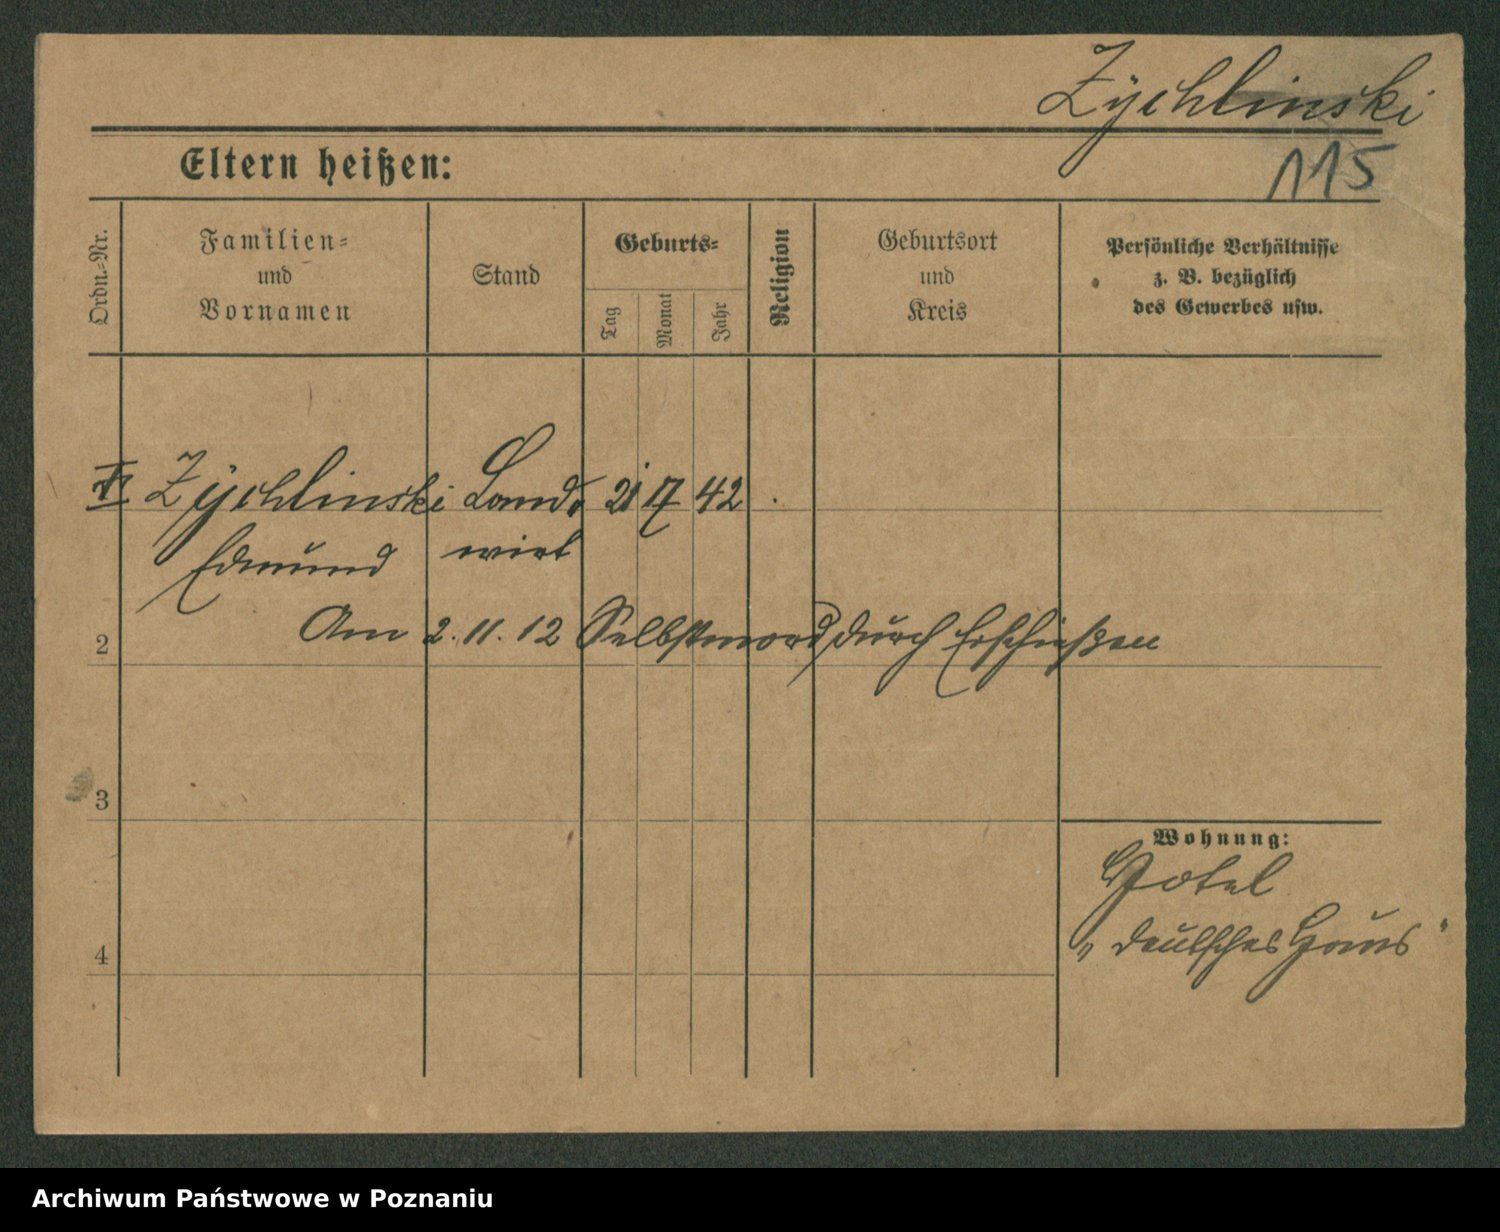 Zÿchlinski
Eltern heißen:
115
Ordn.-Nr.
Familien-
und
Vornamen
Stand
Geburts-
Tag
Monat
Jahr
Religion
Geburtsort
und
Kreis
Persönliche Verhältnisse
z. B. bezüglich
des Gewerbes usw.
Zÿchlinski Land- 21 42
Edmund wirt
Am 2. 11. 12 Selbstmord durch Erschießen
2
3
4
Wohnung:
Hotel
„deutsches Haus"
Archiwum Państwowe w Poznaniu